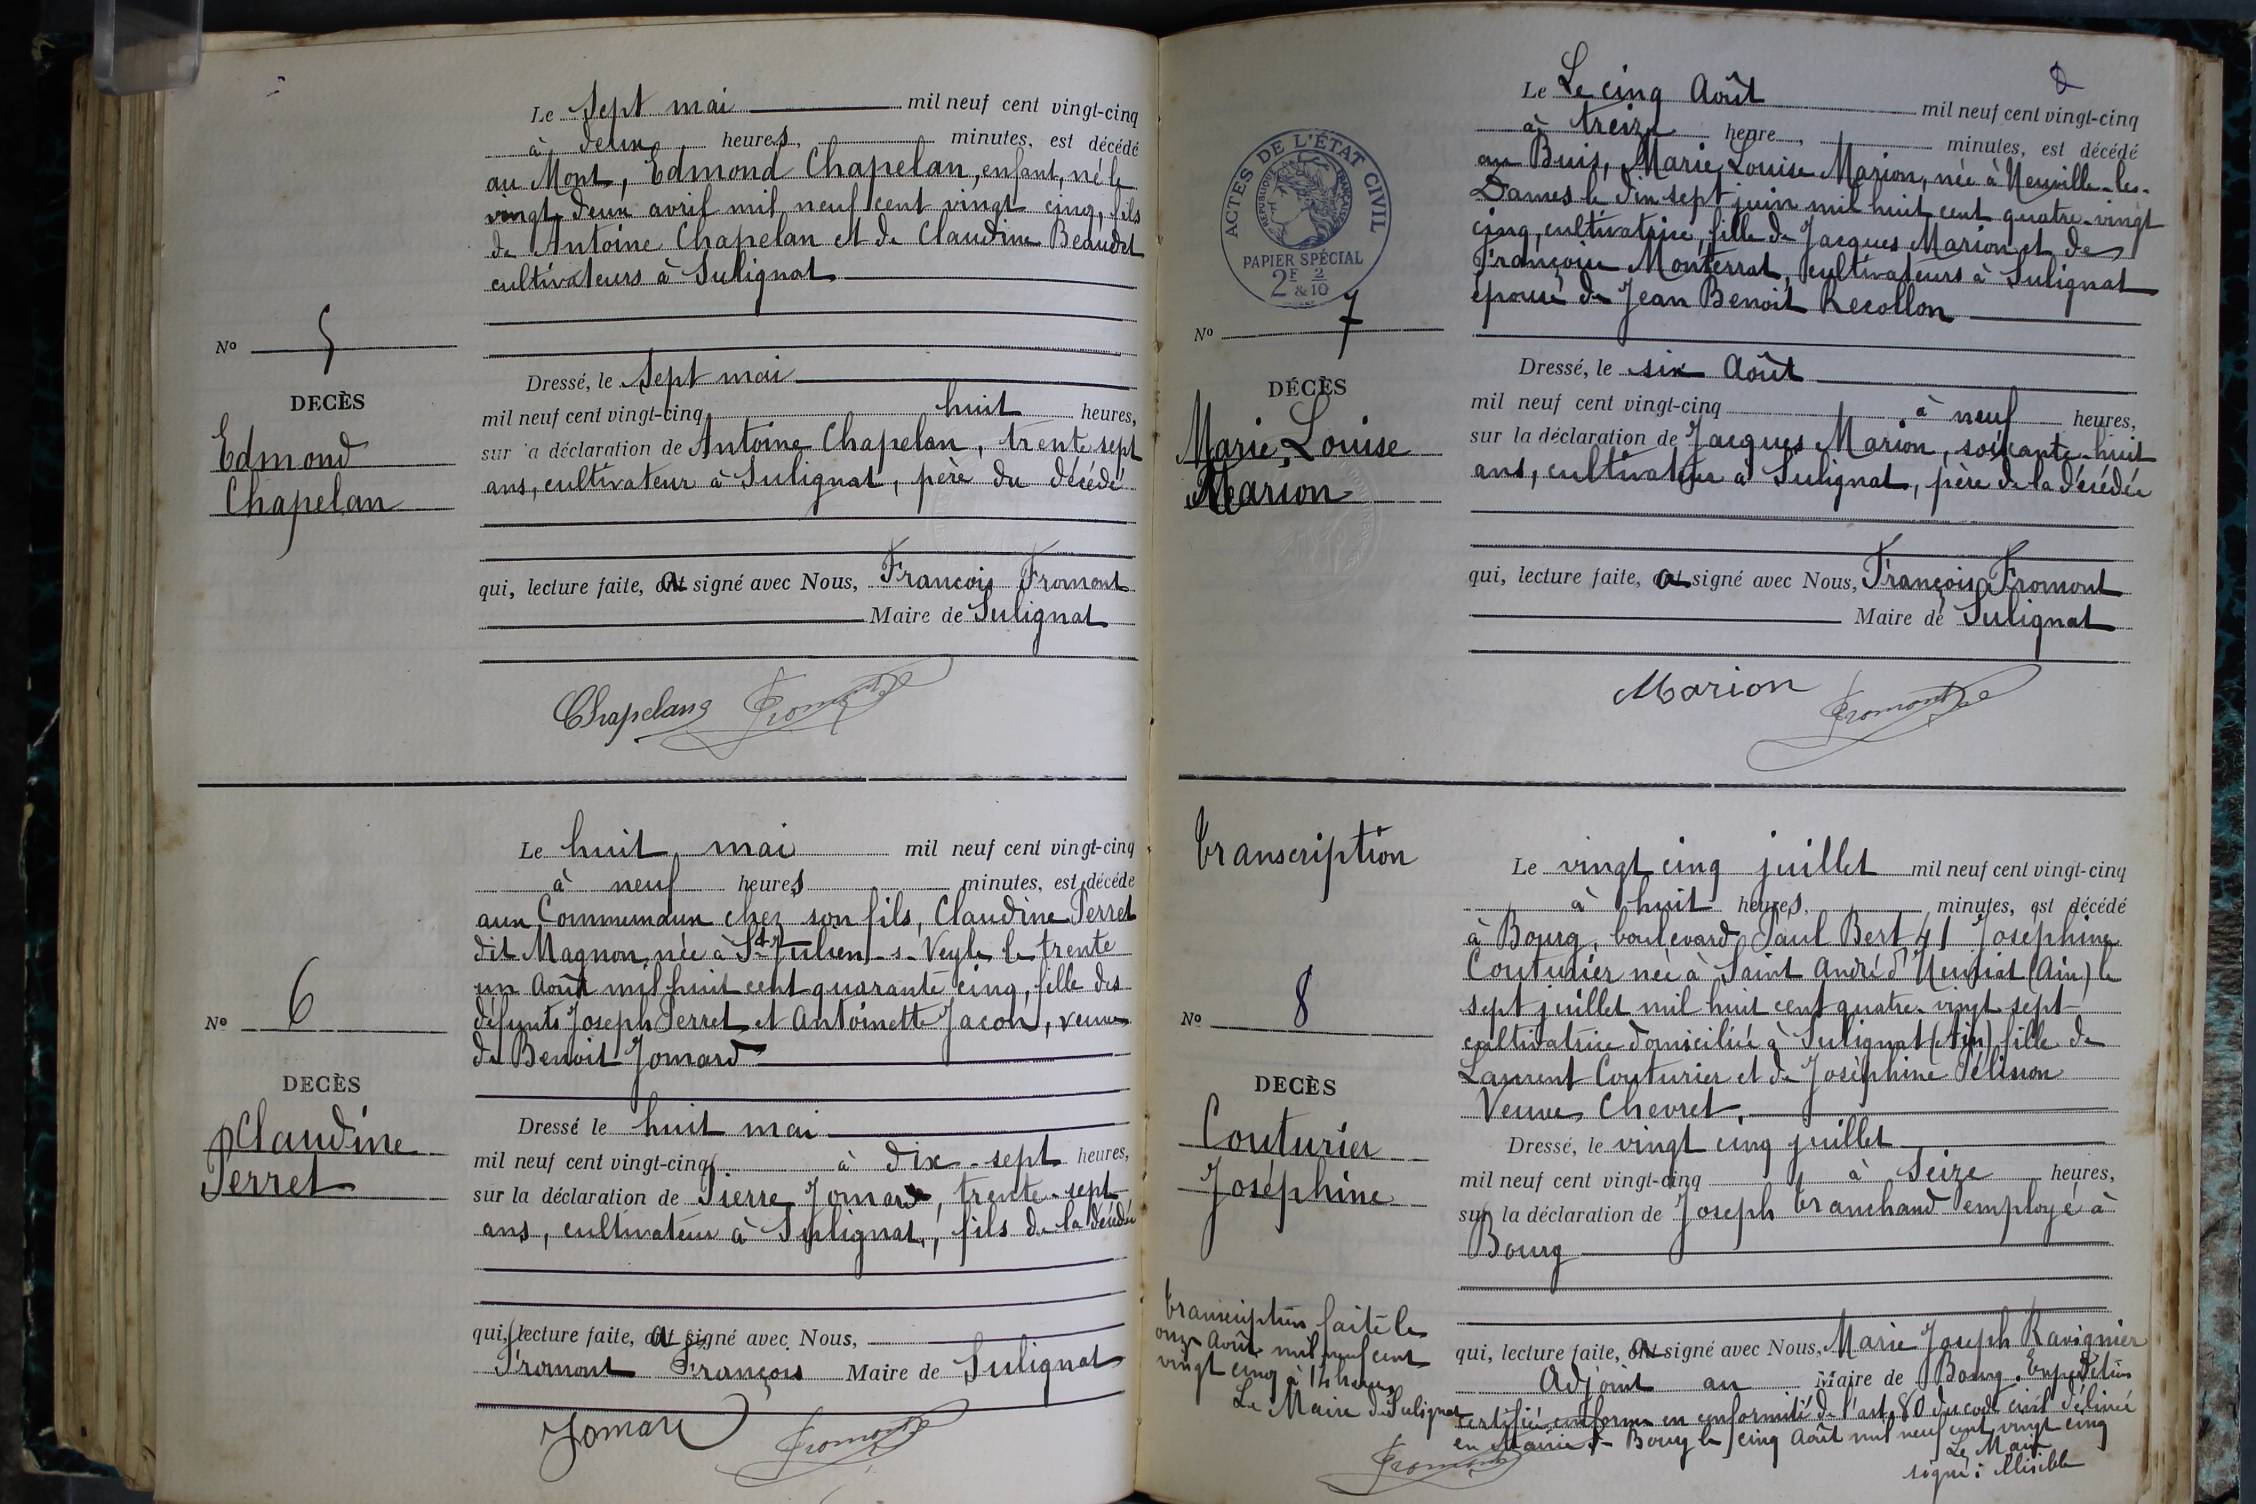 Le Sept mai mil neuf cent vingt-cinq
à deux heures, minutes, est décédé
au Mont, Edmond Chapelan, enfant, né le
vingt deux avril mil neuf cent vingt cinq, fils
de Antoine Chapelan et de Claudine Beaudet
cultivateurs à Sulignat
No 5
DECÈS
Edmond
Chapelan
Dressé, le Sept mai
mil neuf cent vingt-cinq huit heures,
sur a déclaration de Antoine Chapelan, trente sept
ans, cultivateur à Sulignat, père du décédé
qui, lecture faite, a signé avec Nous, François Fromont
Maire de Sulignat
Chapelan Fromont
Le huit mai mil neuf cent vingt-cinq
à neuf heures minutes, est décédé
aux Communaux chez son fils, Claudine Perret
dit Magnon, née à St Julien-s-Veyle le trente
un Août mil huit cent quarante cinq, fille des
défunts Joseph Perret et Antoinette Jacon, veuve
de Benoit Jomard
No 6
DECÈS
Claudine
Perret
Dressé le huit mai
mil neuf cent vingt-cinq à dix-sept heures,
sur la déclaration de Pierre Jomard, trente-sept
ans, cultivateur à Sulignat, fils de la décédée
qui, lecture faite, a signé avec Nous,
Fromont François Maire de Sulignat
Jomard Fromont
Le Le cinq Août mil neuf cent vingt-cinq
à treize heure, minutes, est décédé
au Buis, Marie, Louise Marion, née à Neuville-les-
Dames le dix sept juin mil huit cent quatre-vingt
cinq, cultivatrice, fille de Jacques Marion et de
Françoise Monterrat, cultivateurs à Sulignat
épouse de Jean Benoit Recollon
ACTES DE L'ÉTAT CIVIL
RÉPUBLIQUE FRANÇAISE
PAPIER SPÉCIAL
2F & 2/10
No 7
DÉCÈS
Marie, Louise
Marion
Dressé, le six Août
mil neuf cent vingt-cinq à neuf heures,
sur la déclaration de Jacques Marion, soixante-huit
ans, cultivateur à Sulignat, père de la décédée
qui, lecture faite, a signé avec Nous, François Fromont
Maire de Sulignat
Marion Fromont
Transcription
Le vingt cinq juillet mil neuf cent vingt-cinq
à huit heures, minutes, est décédé
à Bourg, boulevard Paul Bert 41 Joséphine
Couturier née à Saint André d'Huiriat (Ain) le
sept juillet mil huit cent quatre-vingt-sept
cultivatrice domiciliée à Sulignat (Ain) fille de
Laurent Couturier et de Joséphine Pélisson
Veuve Chevret.
No 8
DECÈS
Couturier
Joséphine
Dressé, le vingt cinq juillet
mil neuf cent vingt-cinq à Seize heures,
sur la déclaration de Joseph Tranchand employé à
Bourg
qui, lecture faite, a signé avec Nous, Marie Joseph Ravignier
Adjoint au Maire de Bourg. Expédition
certifiée conforme en conformité de l'art. 80 du code civil délivrée
en Mairie de Bourg le cinq Août mil neuf cent vingt cinq
Le Maire
signé: illisible
Transcription faite le
onze Août mil neuf cent
vingt cinq à 14 heures
Le Maire de Sulignat
Fromont